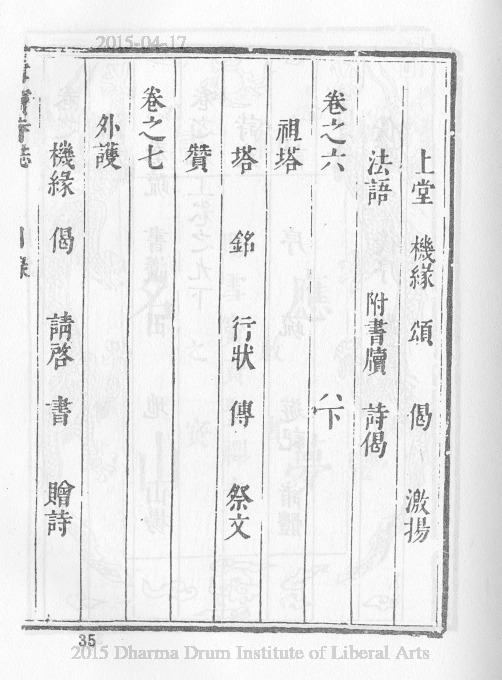 2015-04-17
上堂 機緣 頌 偈 激揚
法語 附書牘 詩偈
卷之六 八下
祖塔
塔 銘 行狀 傳 祭文
贊
卷之七
外護
機緣 偈 請啓 書 贈詩
寺志
目錄
35
2015 Dharma Drum Institute of Liberal Arts